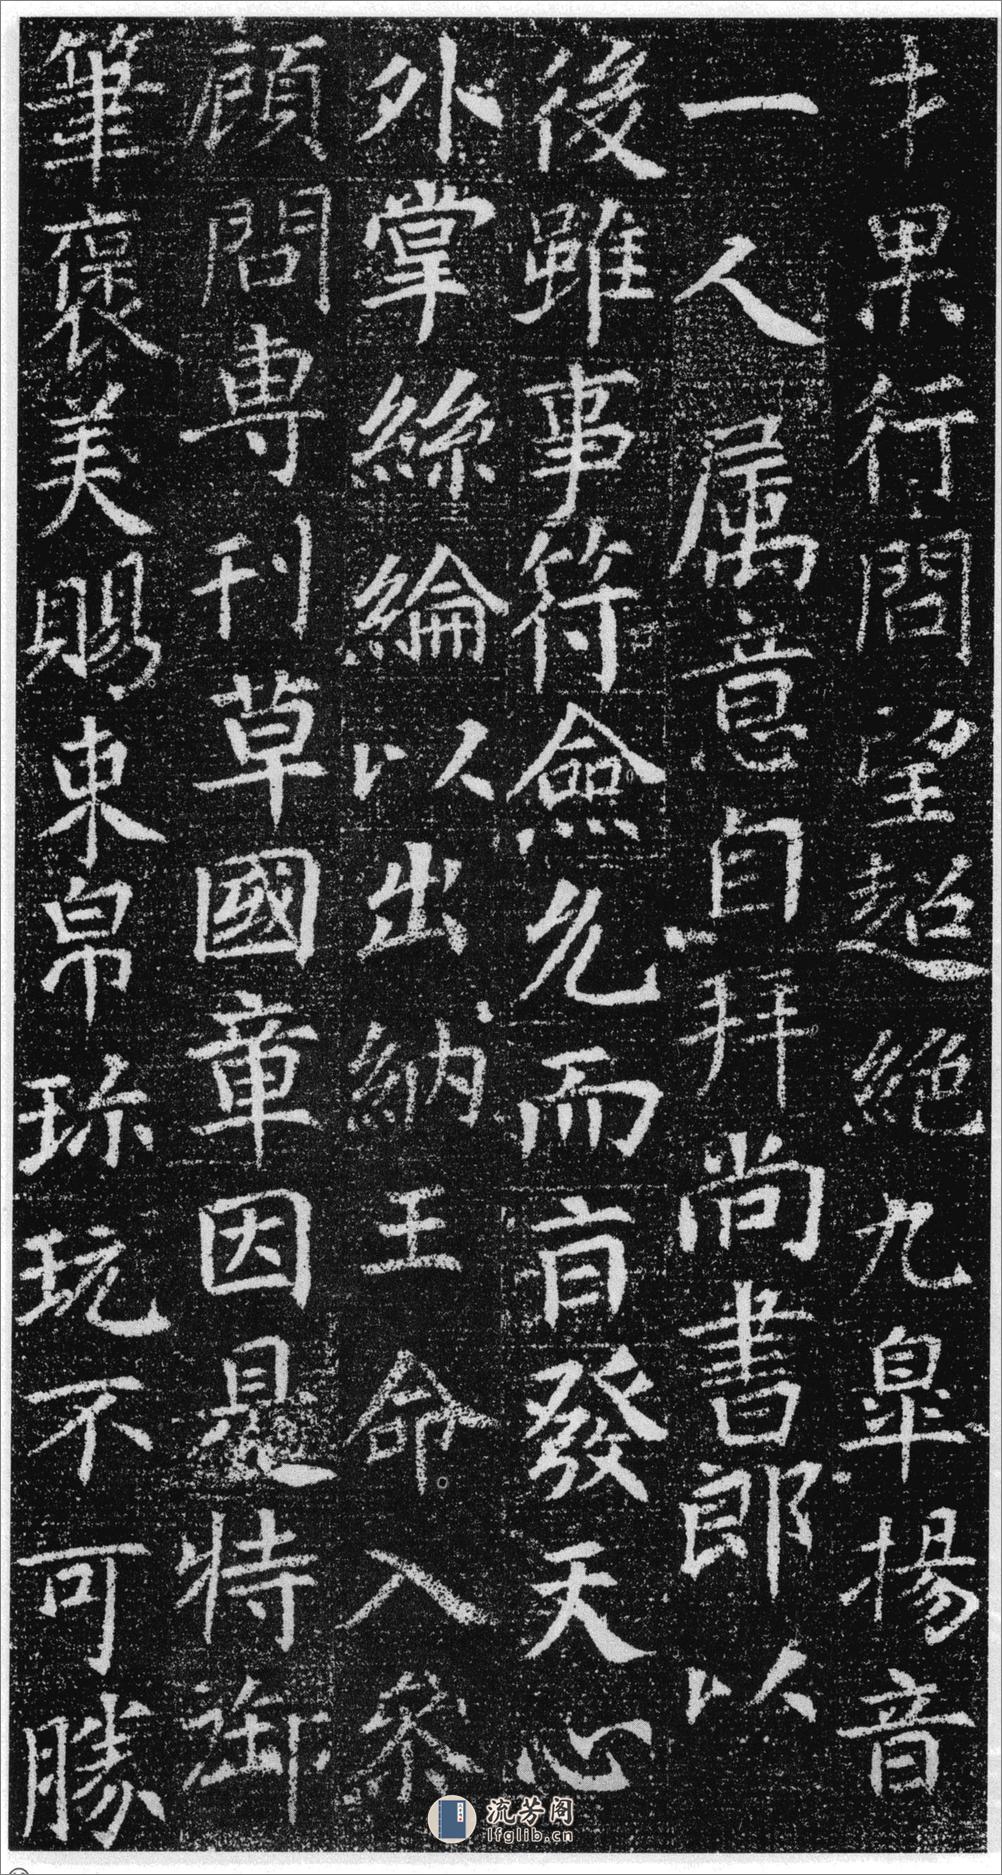 才果行間望超絕九皐揚音
一人属意自拜尚書郎以
後雖事符僉允而㐭發天心
外掌絲綸以出納王命入参
顧問専刊草國章因是特御
筆褒美賜東帛珎玩不可勝
流芳阁
lfglib.cn